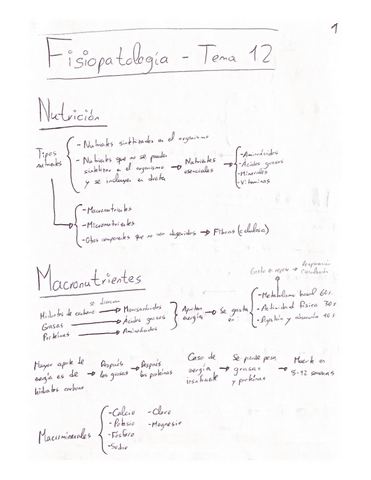 1
Fisiopatología - Tema 12
Nutrición
Tipos
nutrientes
- Nutrientes sintetizados en el organismo
- Nutrientes que no se pueden
sintetizar en el organismo
y se incluyen en dieta
→ Nutrientes
esenciales
- Aminoácidos
- Ácidos grasos
- Minerales
- Vitaminas
- Macronutrientes
- Micronutrientes
- Otros componentes que no son digeridos → Fibras (celulosa)
Macronutrientes
Gasto en reposo → Respiración
Circulación
se
Hidratos de carbono → Monosacáridos
Grasas → Ácidos grasos
Proteínas → Aminoácidos
Aportan
energía
→ Se gasta
en
- Metabolismo basal
- Actividad física
- Digestión y
Mayor aporte de
energía es de
hidratos carbono
→ Después
las grasas
→ Después
las proteínas
Caso de
energía
→ Se puede
grasas
y proteínas
→ Muerte en
8-12 semanas
Macrominerales
- Calcio
- Potasio
- Fósforo
- Sodio
- Cloro
- Magnesio